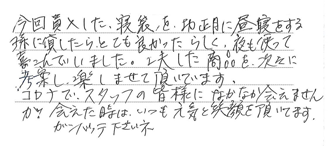 今回買入した、寝袋を、お正月に昼寝をする
孫に貸したらとても良かったらしく、夜も使って
喜んでいました。工夫した商品を、次々に
考案し、楽しませて頂いています。
コロナで、スタッフの皆様になかなか会えません
が、会えた時は、いつも元気と笑顔を頂いてます。
ガンバッテ下さいネ